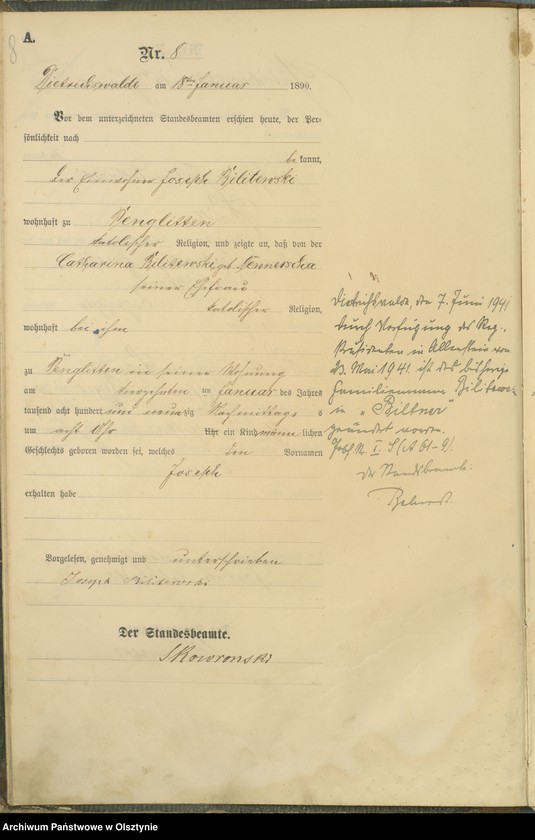 A.
8
Nr. 8
Dietrichswalde am 18ten Januar 1890.
Vor dem unterzeichneten Standesbeamten erschien heute, der Per-
sönlichkeit nach
be kannt,
der Einwohner Joseph Bilitewski
wohnhaft zu Penglitten
katolischer Religion, und zeigte an, daß von der
Catharina Bilitewski geb.
seiner Ehefrau
katolischer Religion,
wohnhaft bei ihm
zu Penglitten in seiner Wohnung
am Januar des Jahres
tausend acht hundert und neunzig Nachmittags
um acht Uhr Uhr ein Kind männlichen
Geschlechts geboren worden sei, welches den Vornamen
Joseph
erhalten habe
Vorgelesen, genehmigt und unterschrieben
Joseph Bilitewski
Der Standesbeamte.
Skowronski
Dietrichswalde, den 7. Juni 1941
Durch Verfügung des Reg.-
Präsidenten in Allenstein vom
23. Mai 1941 ist der bisherige
Familienname Bilitewski
in „Biltner"
geändert worden.
I. S (A 61-9).
Der Standesbeamte:
Archiwum Państwowe w Olsztynie